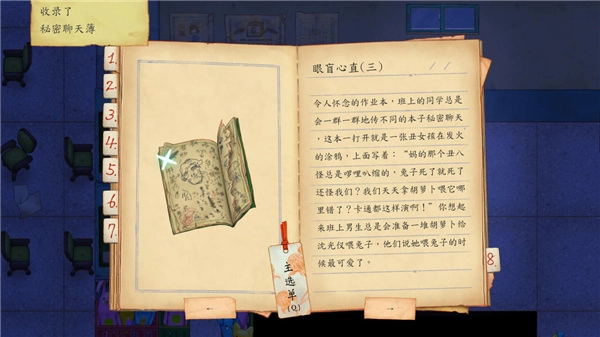 收录了
秘密聊天薄
1.
2.
3.
4.
5.
6.
7.
眼盲心直(三)
令人怀念的作业本，班上的同学总是
会一群一群地传不同的本子秘密聊天
，这本一打开就是一张丑女孩在发火
的涂鸦，上面写着：“妈的那个丑八
怪总是啰哩叭缩的，兔子死了就死了
还怪我们？我们天天拿胡萝卜喂它哪
里错了？卡通都这样演啊！”你想起
来班上男生总是会准备一堆胡萝卜给
沈光仪喂兔子，他们说她喂兔子的时
候最可爱了。
8.
主选单
(Q)